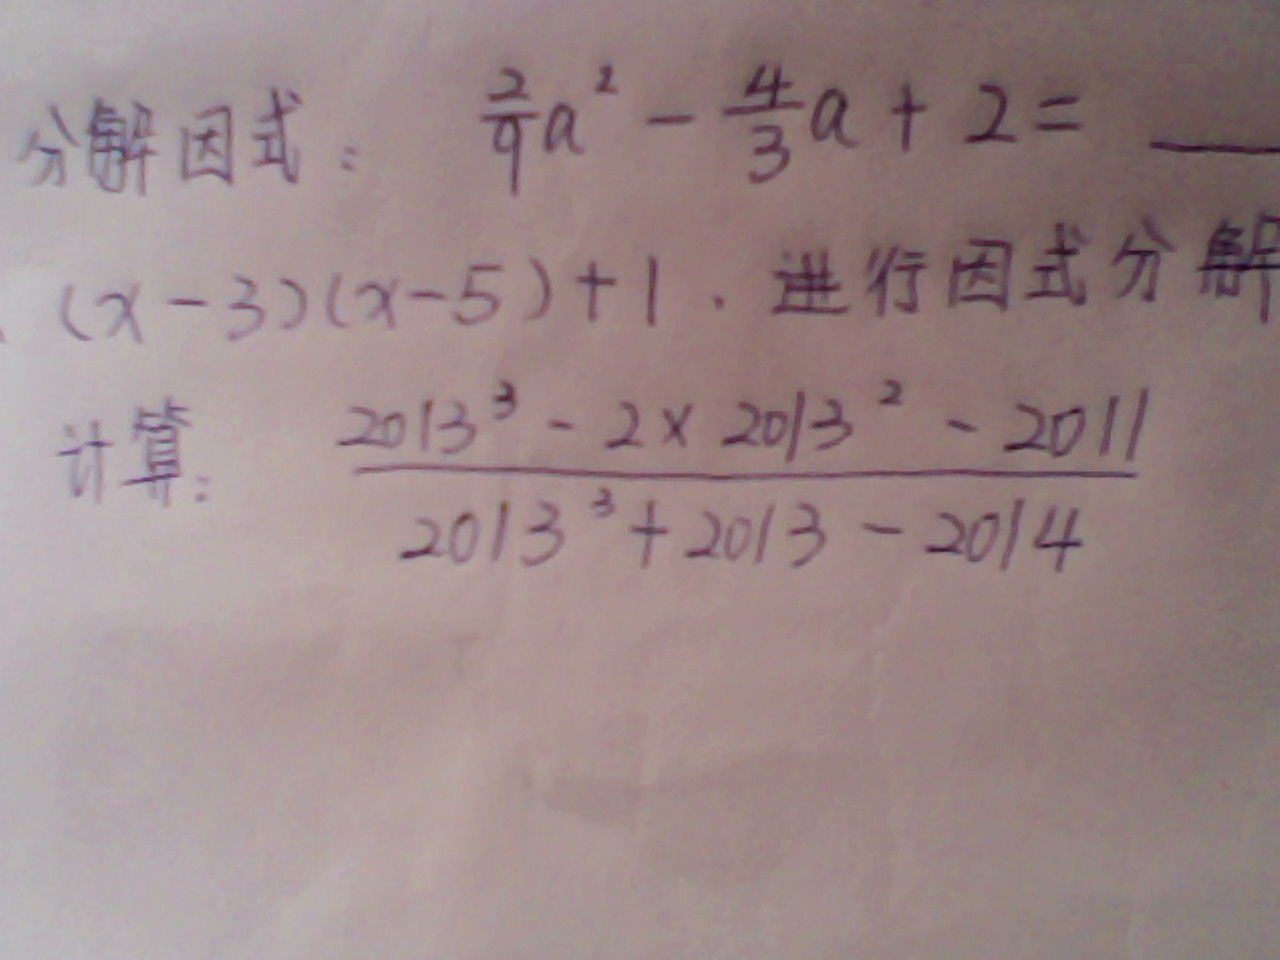 分解因式： 2/9 a² - 4/3 a + 2 = ___
(x-3)(x-5)+1. 进行因式分解
计算： (2013³ - 2×2013² - 2011)/(2013³ + 2013 - 2014)